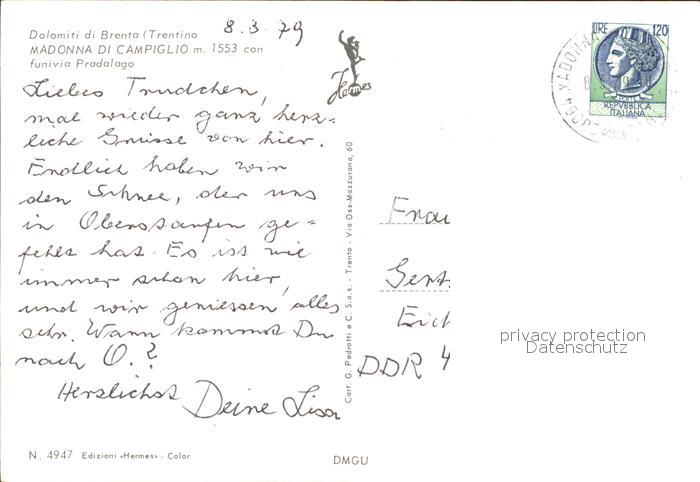 Dolomiti di Brenta (Trentino
MADONNA DI CAMPIGLIO m. 1553 con
funivia Pradalago
8.3.79
Hermes
LIRE 120
REPVBBLICA
ITALIANA
Liebes Trudchen,
mal wieder ganz herz=
liche Grüsse von hier.
Endlich haben wir
den Schnee, der uns
in Oberstaufen ge=
fehlt hat. Es ist wie
immer schön hier,
und wir geniessen alles
sehr. Wann kommst Du
nach O.?
Herzlichst Deine Lisa
Cart. G. Pedrotti e C. S.a.s. - Trento - Via Oss-Mazzurana, 60
Frau
Gert
Eric
DDR 4
privacy protection
Datenschutz
N. 4947 Edizioni «Hermes» - Color
DMGU